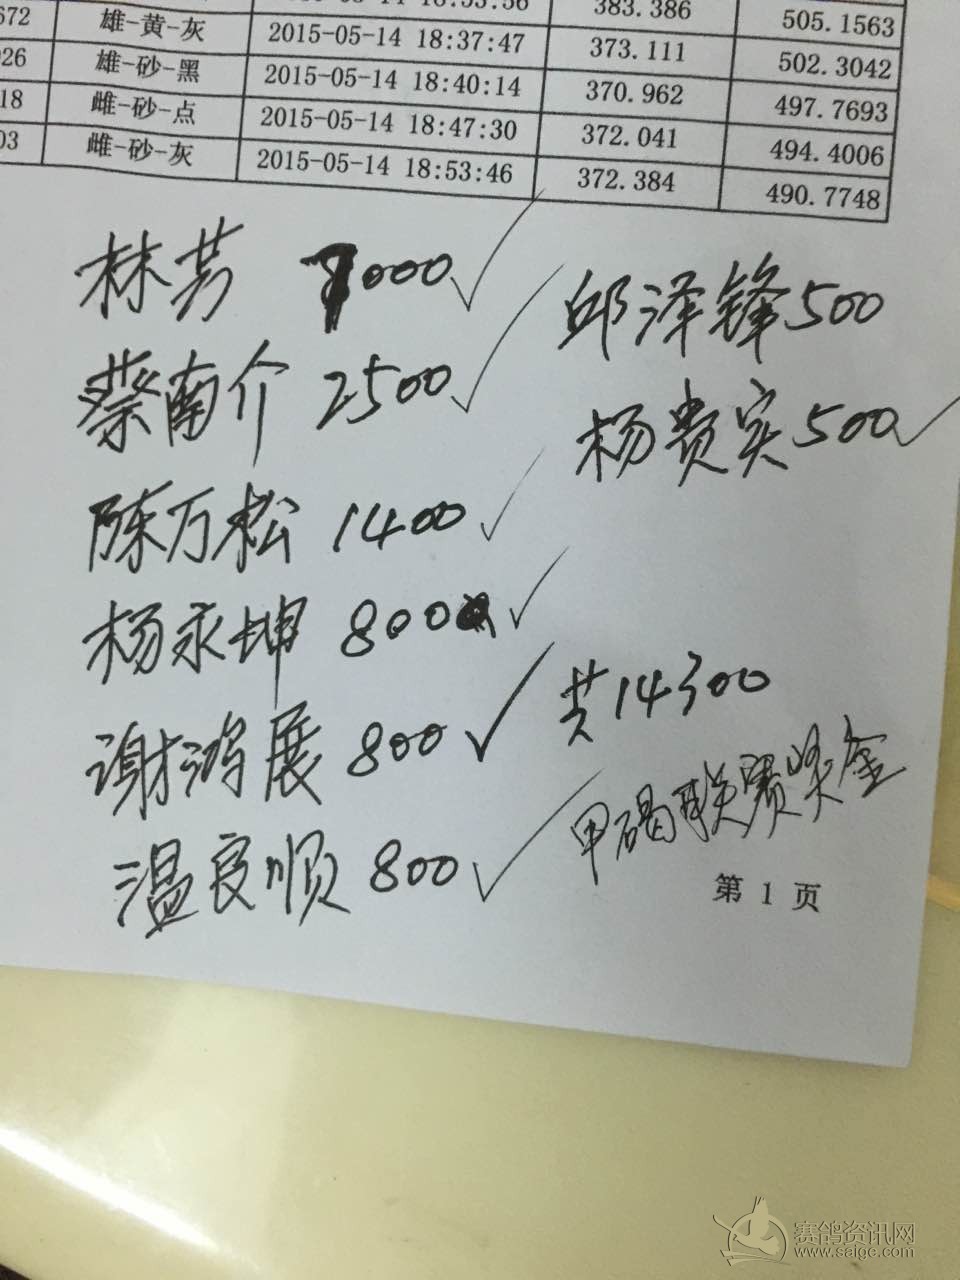 383.386 505.1563
672 雄-黄-灰 2015-05-14 18:37:47 373.111 502.3042
026 雄-砂-黑 2015-05-14 18:40:14 370.962 497.7693
18 雌-砂-点 2015-05-14 18:47:30 372.041 494.4006
03 雌-砂-灰 2015-05-14 18:53:46 372.384 490.7748
林芳 7000✓
蔡南介 2500✓
陈万松 1400✓
杨永坤 800✓
谢鸿展 800✓
温良顺 800✓
邱泽锋500
杨贵实500✓
共14300
甲碣联赛奖金
第 1 页
赛鸽资讯网
www.saigc.com